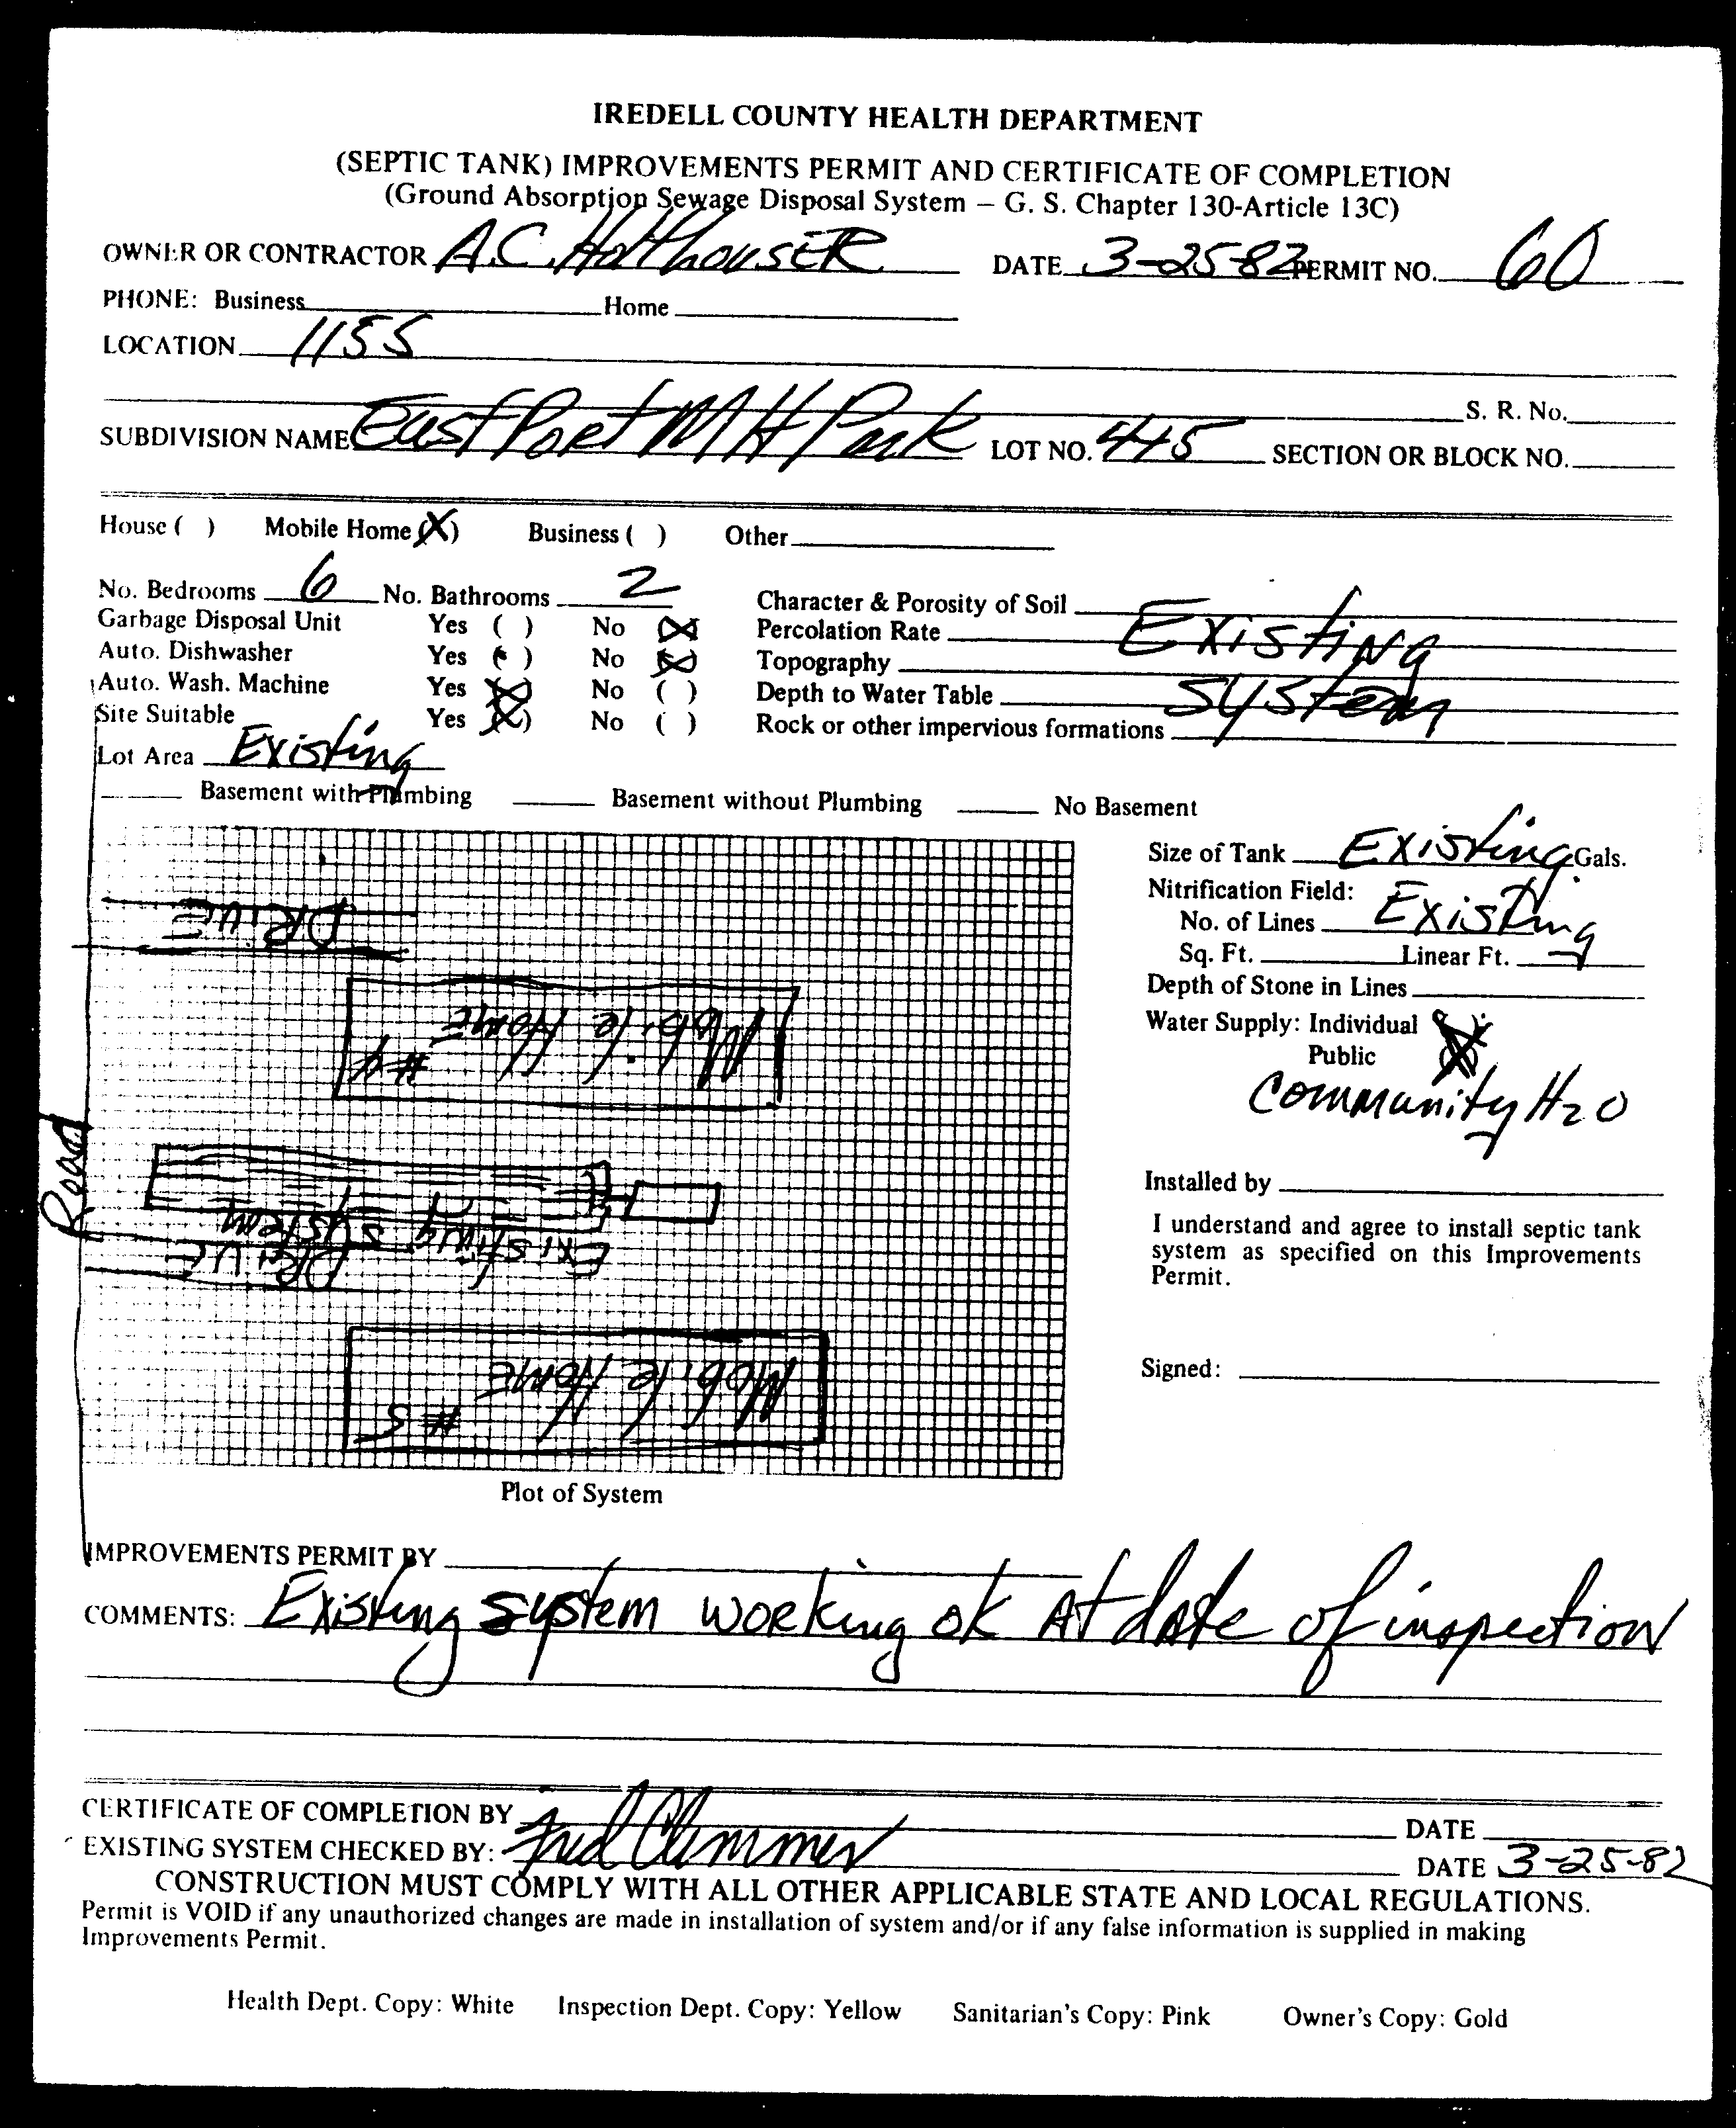 IREDELL COUNTY HEALTH DEPARTMENT
(SEPTIC TANK) IMPROVEMENTS PERMIT AND CERTIFICATE OF COMPLETION
(Ground Absorption Sewage Disposal System – G. S. Chapter 130-Article 13C)
OWNER OR CONTRACTOR A.C. HolthousER DATE 3-25-82 PERMIT NO. 60
PHONE: Business Home
LOCATION 1155
S. R. No.
SUBDIVISION NAME East Port MH Park LOT NO. 4+5 SECTION OR BLOCK NO.
House ( ) Mobile Home (X) Business ( ) Other
No. Bedrooms 6 No. Bathrooms 2 Character & Porosity of Soil
Garbage Disposal Unit Yes ( ) No (X) Percolation Rate Existing
Auto. Dishwasher Yes ( ) No (X) Topography
Auto. Wash. Machine Yes (X) No ( ) Depth to Water Table System
Site Suitable Yes (X) No ( ) Rock or other impervious formations
Lot Area Existing
Basement with Plumbing Basement without Plumbing No Basement
Size of Tank Existing Gals.
Nitrification Field:
No. of Lines Existing
Sq. Ft. Linear Ft.
Depth of Stone in Lines
Water Supply: Individual
Public (X)
Community H2O
Installed by
I understand and agree to install septic tank
system as specified on this Improvements
Permit.
Signed:
DRIVE
Mobile Home
#4
Road
Existing System
DRIVE
Mobile Home
#5
Plot of System
IMPROVEMENTS PERMIT BY
COMMENTS: Existing system working ok At date of inspection
CERTIFICATE OF COMPLETION BY DATE
EXISTING SYSTEM CHECKED BY: Fred Clemmer DATE 3-25-82
CONSTRUCTION MUST COMPLY WITH ALL OTHER APPLICABLE STATE AND LOCAL REGULATIONS.
Permit is VOID if any unauthorized changes are made in installation of system and/or if any false information is supplied in making
Improvements Permit.
Health Dept. Copy: White Inspection Dept. Copy: Yellow Sanitarian's Copy: Pink Owner's Copy: Gold